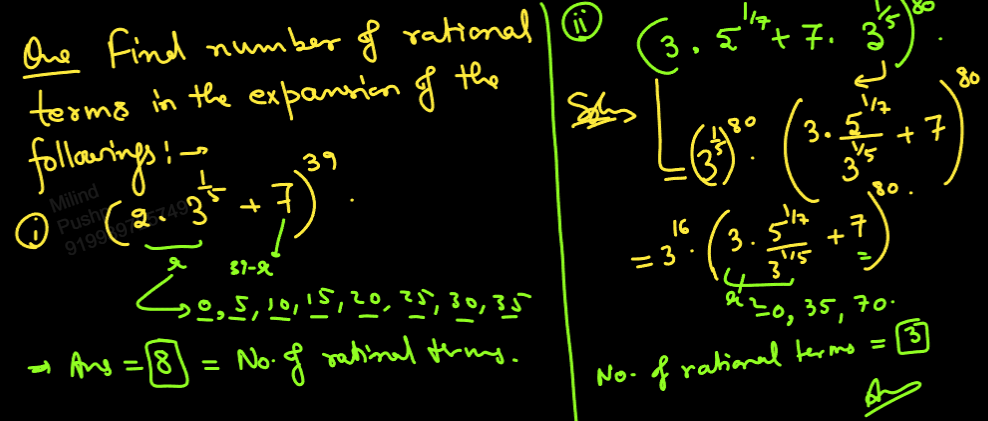 Que Find number of rational
terms in the expansion of the
followings:→
(i) (2·3^{1/5} + 7)^{39}.
r 39-r
→ 0, 5, 10, 15, 20, 25, 30, 35
→ Ans = 8 = No. of rational terms.
Milind
(ii) (3·5^{1/7} + 7·3^{1/5})^{80}.
Soln
= (3^{1/5})^{80}·(3·5^{1/7}/3^{1/5} + 7)^{80}
= 3^{16}·(3·5^{1/7}/3^{1/5} + 7)^{80}.
r = 0, 35, 70.
No. of rational terms = 3
Ans